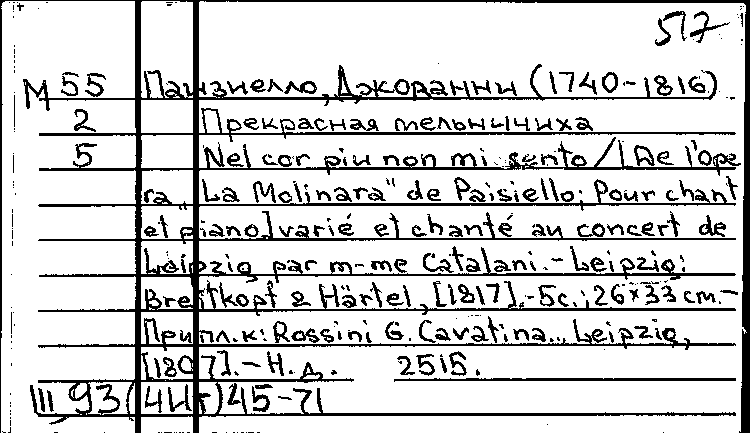 517
М 55 Паизиелло, Джованни (1740-1816)
2 Прекрасная мельничиха
5 Nel cor piu non mi sento / [De l'ope
ra „La Molinara" de Paisiello; Pour chant
et piano] varié et chanté au concert de
Leipzig par m-me Catalani.- Leipzig:
Breitkopf & Härtel, [1817].-5с.; 26×33 cm.-
Припл.к: Rossini G. Cavatina... Leipzig,
[1807].-Н.д. 2515.
III 93(4Ит)45-71